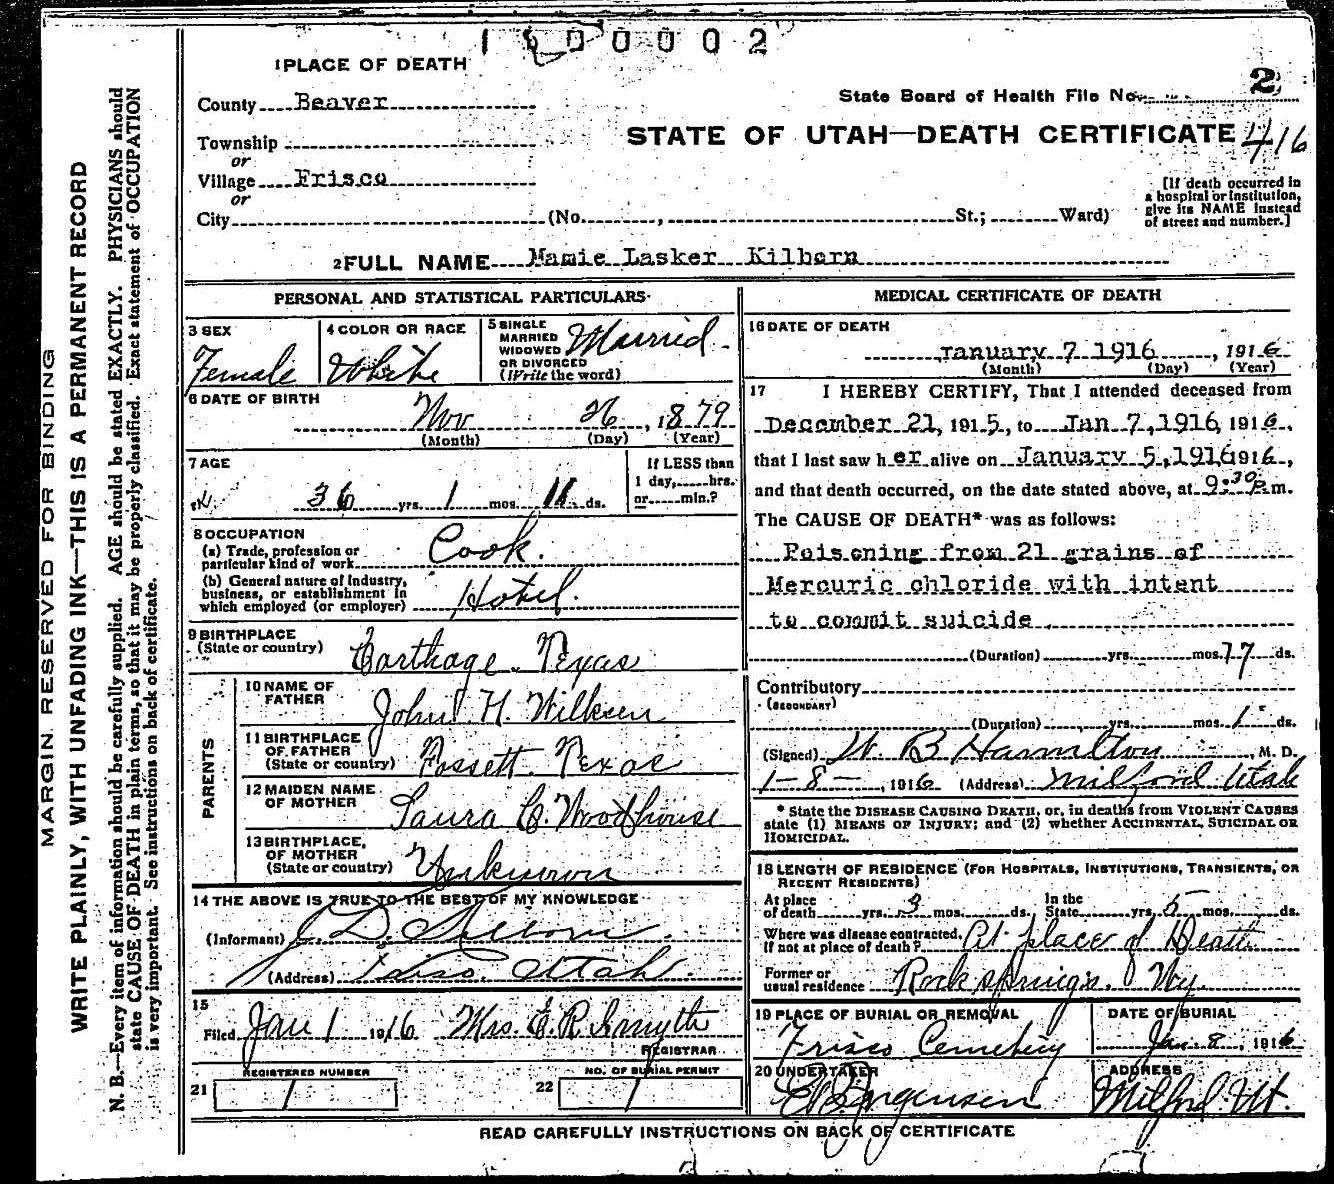 1 0 0 0 0 2
1 PLACE OF DEATH
County Beaver
State Board of Health File No. 2
Township
or
Village Frisco
or
City (No. , St.; Ward)
STATE OF UTAH—DEATH CERTIFICATE 416
[If death occurred in
a hospital or institution,
give its NAME instead
of street and number.]
2 FULL NAME Mamie Lasker Kilborn
PERSONAL AND STATISTICAL PARTICULARS
3 SEX
Female
4 COLOR OR RACE
White
5 SINGLE
MARRIED
WIDOWED
OR DIVORCED
(Write the word)
Married
6 DATE OF BIRTH
Nov 26, 1879
(Month) (Day) (Year)
7 AGE
36 yrs. 1 mos. 11 ds.
If LESS than
1 day, hrs.
or min.?
8 OCCUPATION
(a) Trade, profession or
particular kind of work Cook.
(b) General nature of Industry,
business, or establishment in
which employed (or employer) Hotel.
9 BIRTHPLACE
(State or country) Carthage Texas
PARENTS
10 NAME OF
FATHER John H. Wilksen
11 BIRTHPLACE
OF FATHER
(State or country) Fossett Texas
12 MAIDEN NAME
OF MOTHER Laura C. Woodhouse
13 BIRTHPLACE,
OF MOTHER
(State or country) Unknown
14 THE ABOVE IS TRUE TO THE BEST OF MY KNOWLEDGE
(Informant) J. D.
(Address) Frisco, Utah.
15
Filed Jan 1 1916 Mrs. E. R. Smyth
REGISTRAR
21 REGISTERED NUMBER 1
22 NO. OF BURIAL PERMIT 1
MEDICAL CERTIFICATE OF DEATH
16 DATE OF DEATH
January 7 1916, 1916
(Month) (Day) (Year)
17 I HEREBY CERTIFY, That I attended deceased from
December 21, 1915, to Jan 7, 1916, 1916,
that I last saw her alive on January 5, 1916 1916,
and that death occurred, on the date stated above, at 9:30 P.m.
The CAUSE OF DEATH* was as follows:
Poisoning from 21 grains of
Mercuric chloride with intent
to commit suicide
(Duration) yrs. mos. 17 ds.
Contributory
(SECONDARY)
(Duration) yrs. mos. 1 ds.
(Signed) W. B Hamilton, M. D.
1-8-, 1916 (Address) Milford Utah
* State the DISEASE CAUSING DEATH, or, in deaths from VIOLENT CAUSES
state (1) MEANS OF INJURY; and (2) whether ACCIDENTAL, SUICIDAL OR
HOMICIDAL.
18 LENGTH OF RESIDENCE (FOR HOSPITALS, INSTITUTIONS, TRANSIENTS, OR
RECENT RESIDENTS)
At place
of death yrs. 3 mos. ds. In the
State yrs. 5 mos. ds.
Where was disease contracted,
if not at place of death? At place of Death
Former or
usual residence Rock springs. Wy.
19 PLACE OF BURIAL OR REMOVAL
Frisco Cemetery
DATE OF BURIAL
Jan. 8, 1916
20 UNDERTAKER
E B Jorgensen
ADDRESS
Milford. Ut.
READ CAREFULLY INSTRUCTIONS ON BACK OF CERTIFICATE
MARGIN RESERVED FOR BINDING
WRITE PLAINLY, WITH UNFADING INK—THIS IS A PERMANENT RECORD
N. B.—Every item of information should be carefully supplied. AGE should be stated EXACTLY. PHYSICIANS should
state CAUSE OF DEATH in plain terms, so that it may be properly classified. Exact statement of OCCUPATION
is very important. See instructions on back of certificate.